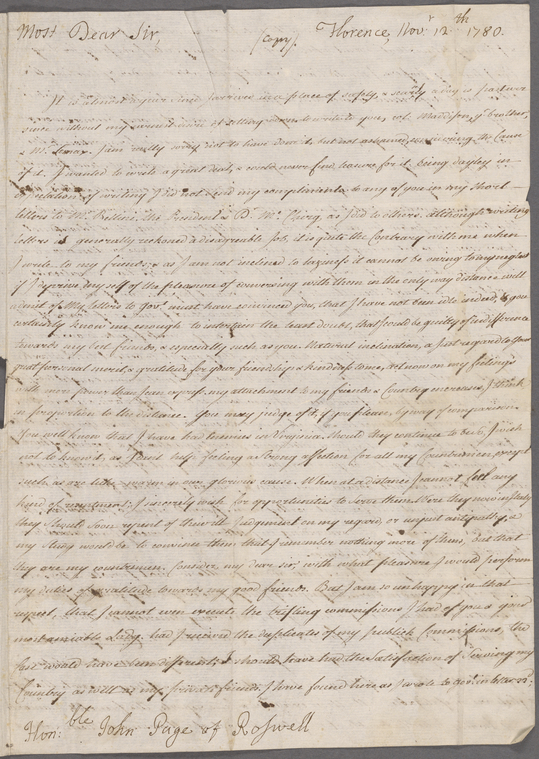 Most Dear Sir, (Copy). Florence, Novr 12th 1780.
It is almost a year since I arrived in a place of safety, & nearly
since without my
& Mr. I am really sorry not to have done it, but not ashamed the Cause
of it. I wanted to write a great deal, & could never find leisure for it. Being dayly in
expectation of writing I did not send my compliments to any of you in my short
letters to Mr. Bellini, the President & Dr. Mc.Clurg, as I did to others. Although writing
letters is generally reckoned a disagreable job, it is quite the Contrary with me when
I write to my friends, & as I am not inclined to laziness it cannot be owing to any neglect
if I deprive myself of the pleasure of conversing with them in the only way distance will
admit of. My letters to Govr. must have convinced you, that I have not been idle indeed, & you
certainly know me enough to intertain the least doubt, that I could be guilty of indifference
towards my best friends, & especially such as you. Natural inclination, a just regard to your
great personal merit, & gratitude for your friendship & kindness to me, act now on my feelings
with more power than I can express. my attachment to my friends & Country increases, I think
in proportion to the distance. You may judge of it, if you please, by way of comparison.
You well know that I have had enemies in Virginia. Should they continue to be so, I wish
not to know it, as I feel strong affection for all my Countrimen, except
such as are in our glorious cause. When at a distance I cannot feel any
kind of resentment; I sincerely wish for opportunities to serve them. Were they now in Italy
they should soon repent of their ill judgement on my regard, or unjust antipathy, as
my study would be to convince them that I remember nothing more of them, but that
they are my countrimen. Consider, my dear sir, with what pleasure I would perform
my duties of gratitude towards my good friends. But I am so unhappy in that
respect, that I cannot even execute the trifling commissions I had of you & your
most amiable Lady. had I received the duplicates of my publick Commissions, the
case would have been different; I should have had the Satisfaction of serving my
Country as well as my private friends. I have found here as I wrote to
Hon:ble John Page of Roswell